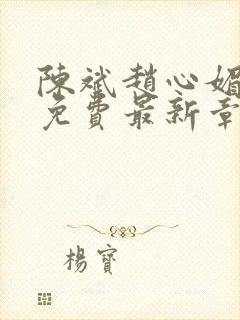 陳斌趙心媚
免費最新章
楊寶